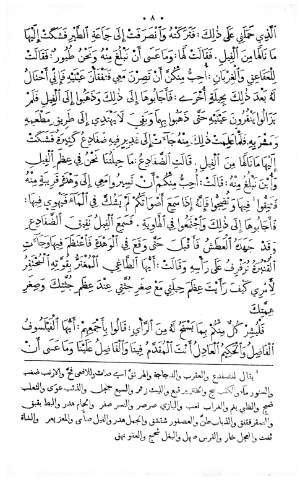 ٨
الذي حملني على ذلك: فتركته وانصرفت إلى جماعة الطير فشكت إليها
ما نالها من الفيل. فقلن لها: وما عسى أن نبلغ منه ونحن طيور: فقالت
للعقاعق والغربان: أحب منكن أن تصرن معي فتفقأن عينيه فإني أحتال
له بعد ذلك بحيلة أخرى: فأجابوها إلى ذلك وذهبوا إلى الفيل فلم
يزالوا ينقرون عينيه حتى ذهبوا بهما وبقي لا يهتدي إلى طريق مطعمه
ومشربه فلما علمت ذلك جاءت إلى غدير فيه ضفادع كثيرة فشكت
إليها ما نالها من الفيل. قالت الضفادع: ما حيلتنا نحن في عظم الفيل
وأين نبلغ منه: قالت: أحب منكن أن تسيروا معي إلى وهدة قريبة منه
فتنقوا فيها وتضجوا فإنه إذا سمع أصواتكم لم يشك في الماء فيهوي فيها
فأجابوها إلى ذلك واجتمعوا في الهاوية. فسمع الفيل نقيق الضفادع
وقد جهده العطش: فأقبل حتى وقع في الوهدة فاعتطم فيها وجاءت
القنبرة ترفرف على رأسه وقالت: أيها الطاغي المغتر بقوته المحتقر
لأمري كيف رأيت عظم حيلتي مع صغر جثتي عند عظم جثتك وصغر
همتك
فليشر كل منكم بما يسنح له من الرأي: قالوا بأجمعهم: أيها الفيلسوف
الفاضل والحكيم العادل أنت المقدم فينا والفاضل علينا وما عسى أن
ضغيب
والثعلب
ضبح والظبي
والغراب نعب والبازي صرصر والنسر صفر والحمام هدر والبط بطبق
والعصفور شقشق والجمل هدر والفيل صأى والمعز يعر والشاة
ثغت والعجل خار والفرس صهل والبغل شحج